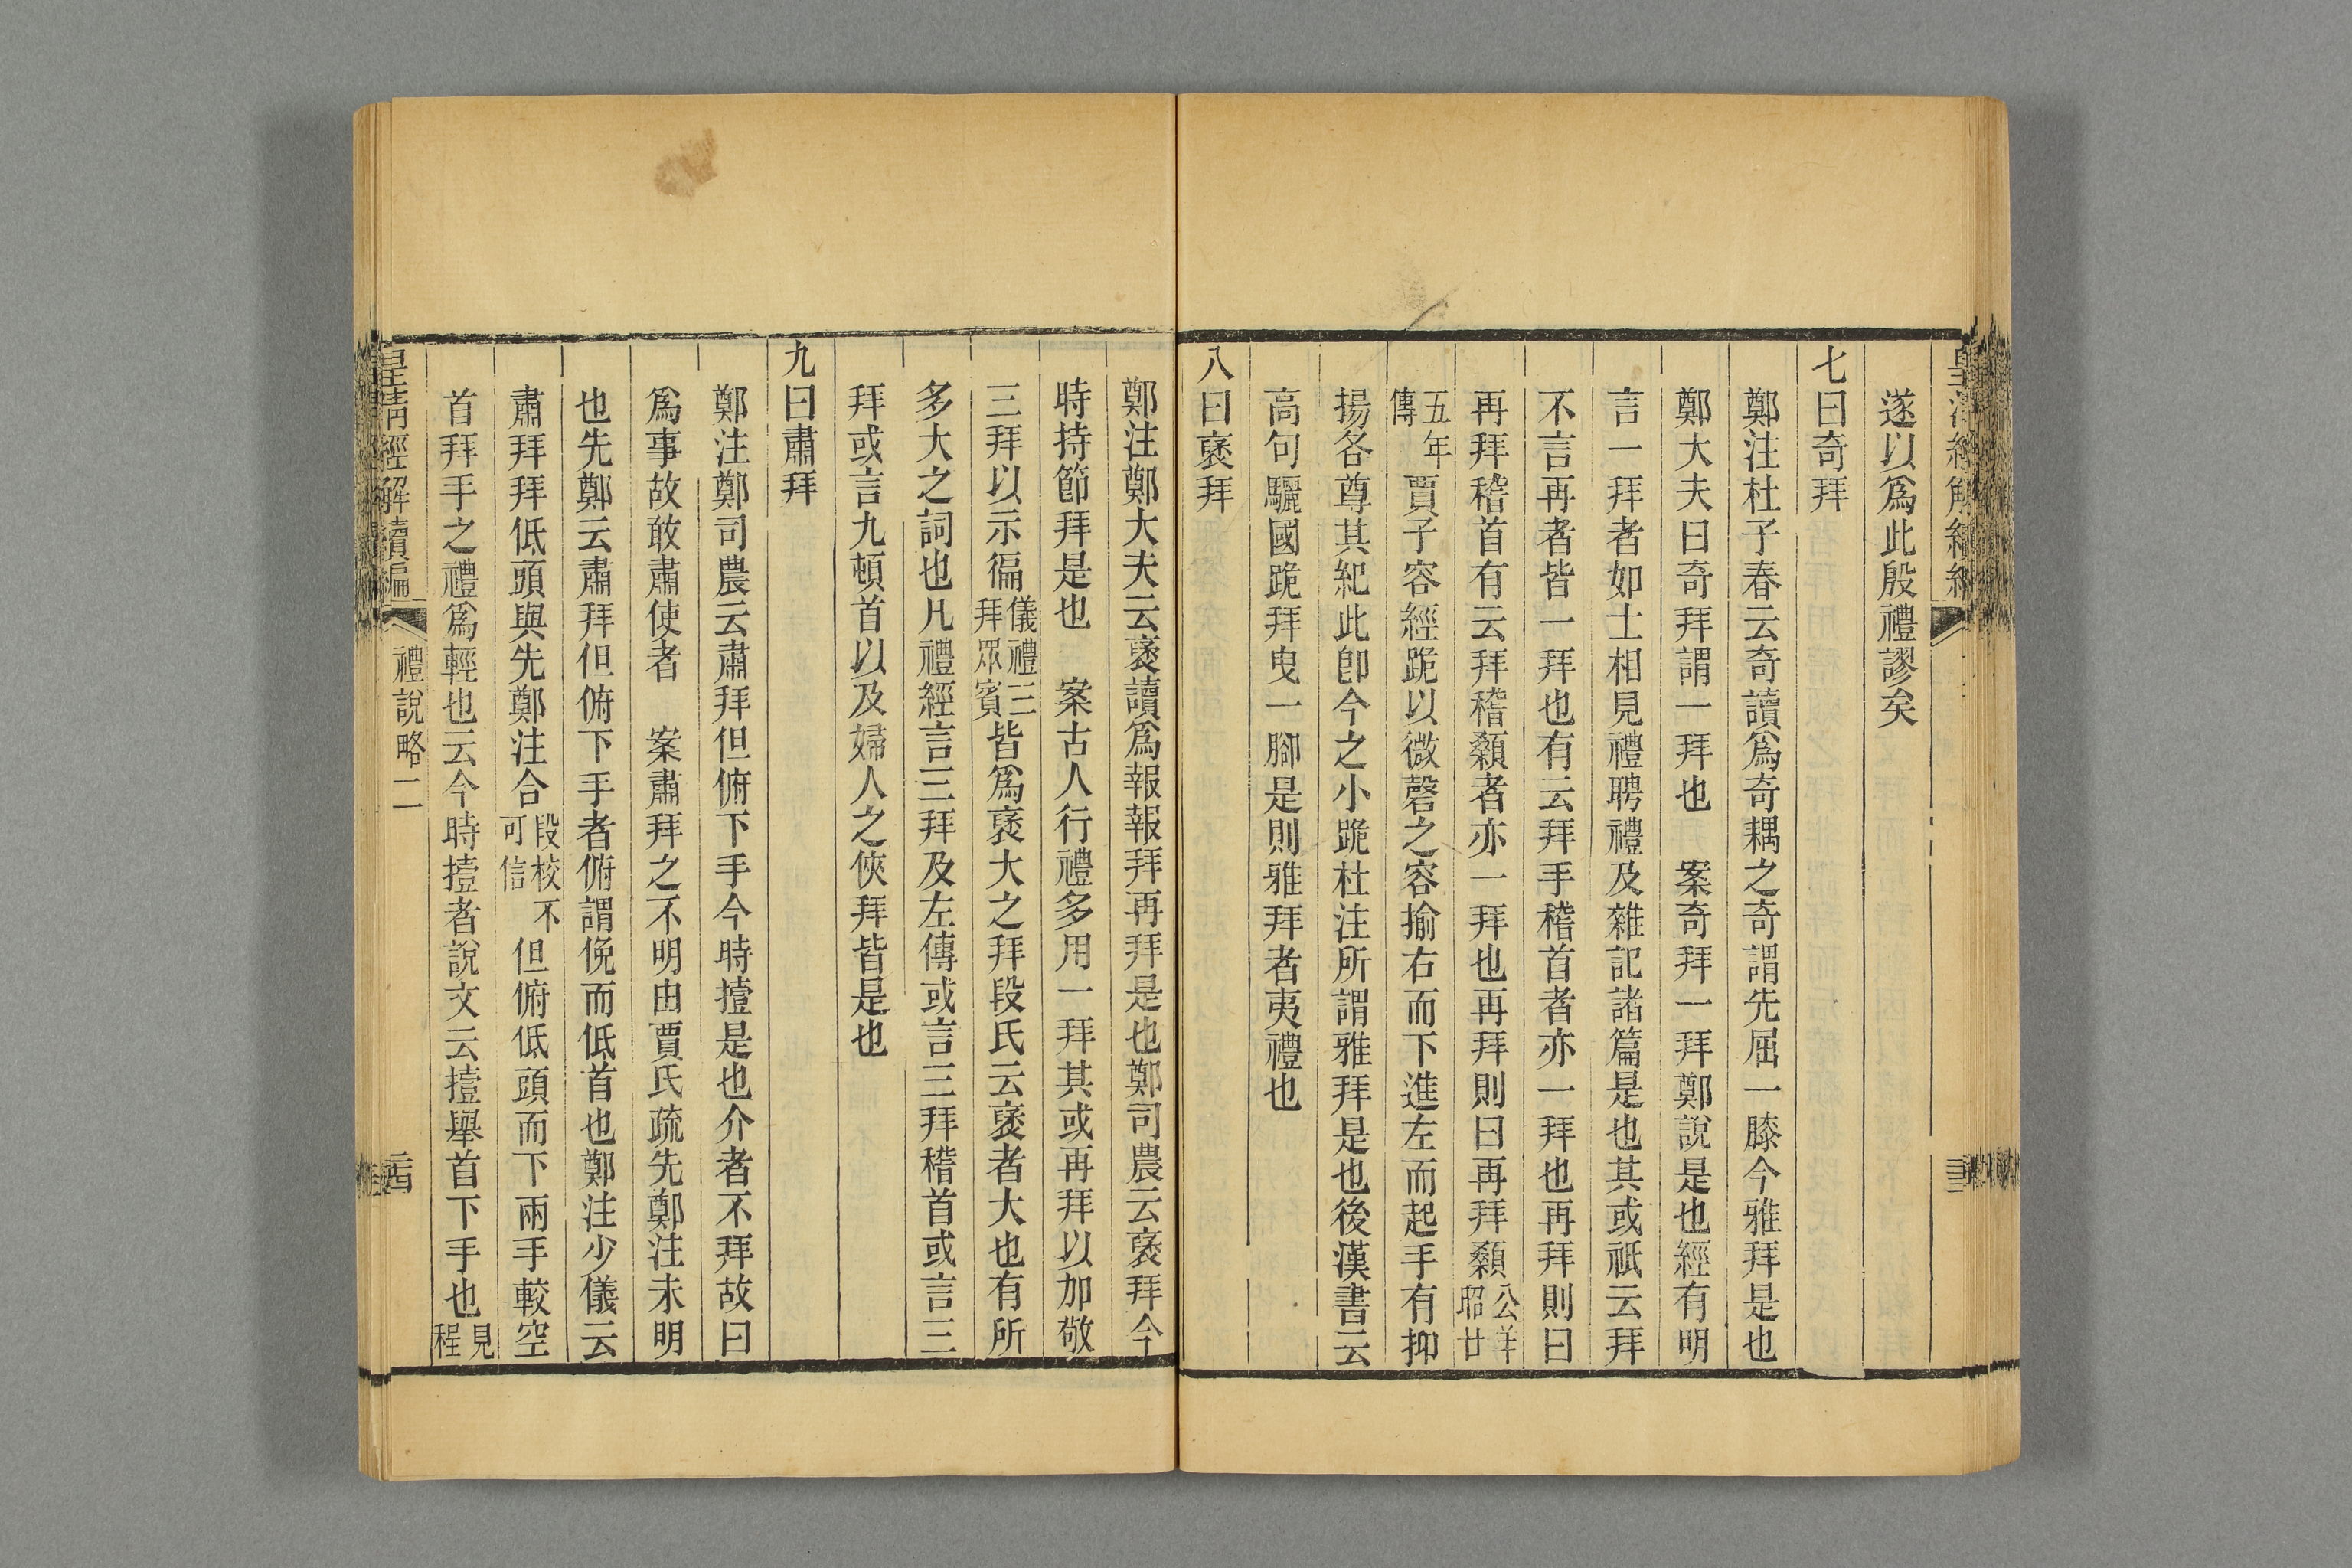 遂以爲此殷禮謬矣
七曰奇拜
鄭注杜子春云奇讀爲奇耦之奇謂先屈一膝今雅拜是也
鄭大夫曰奇拜謂一拜也　案奇拜一拜鄭說是也經有明
言一拜者如士相見禮聘禮及雜記諸篇是也其或祇云拜
不言再者皆一拜也有云拜手稽首者亦一拜也再拜則曰
再拜稽首有云拜稽顙者亦一拜也再拜則曰再拜顙公羊昭廿
五年傳賈子容經跪以微磬之容揄右而下進左而起手有抑
揚各尊其紀此卽今之小跪杜注所謂雅拜是也後漢書云
高句驪國跪拜曳一腳是則雅拜者夷禮也
八曰褒拜
鄭注鄭大夫云褒讀爲報報拜再拜是也鄭司農云褒拜今
時持節拜是也　案古人行禮多用一拜其或再拜以加敬
三拜以示徧儀禮三拜眾賓皆爲褒大之拜段氏云褒者大也有所
多大之詞也凡禮經言三拜及左傳或言三拜稽首或言三
拜或言九頓首以及婦人之俠拜皆是也
九曰肅拜
鄭注鄭司農云肅拜但俯下手今時撎是也介者不拜故曰
爲事故敢肅使者　案肅拜之不明由賈氏疏先鄭注未明
也先鄭云肅拜但俯下手者俯謂俛而低首也鄭注少儀云
肅拜拜低頭與先鄭注合段校不可信但俯低頭而下兩手較空
首拜手之禮爲輕也云今時撎者說文云撎舉首下手也見程
皇清經解續編　禮說略二　二四